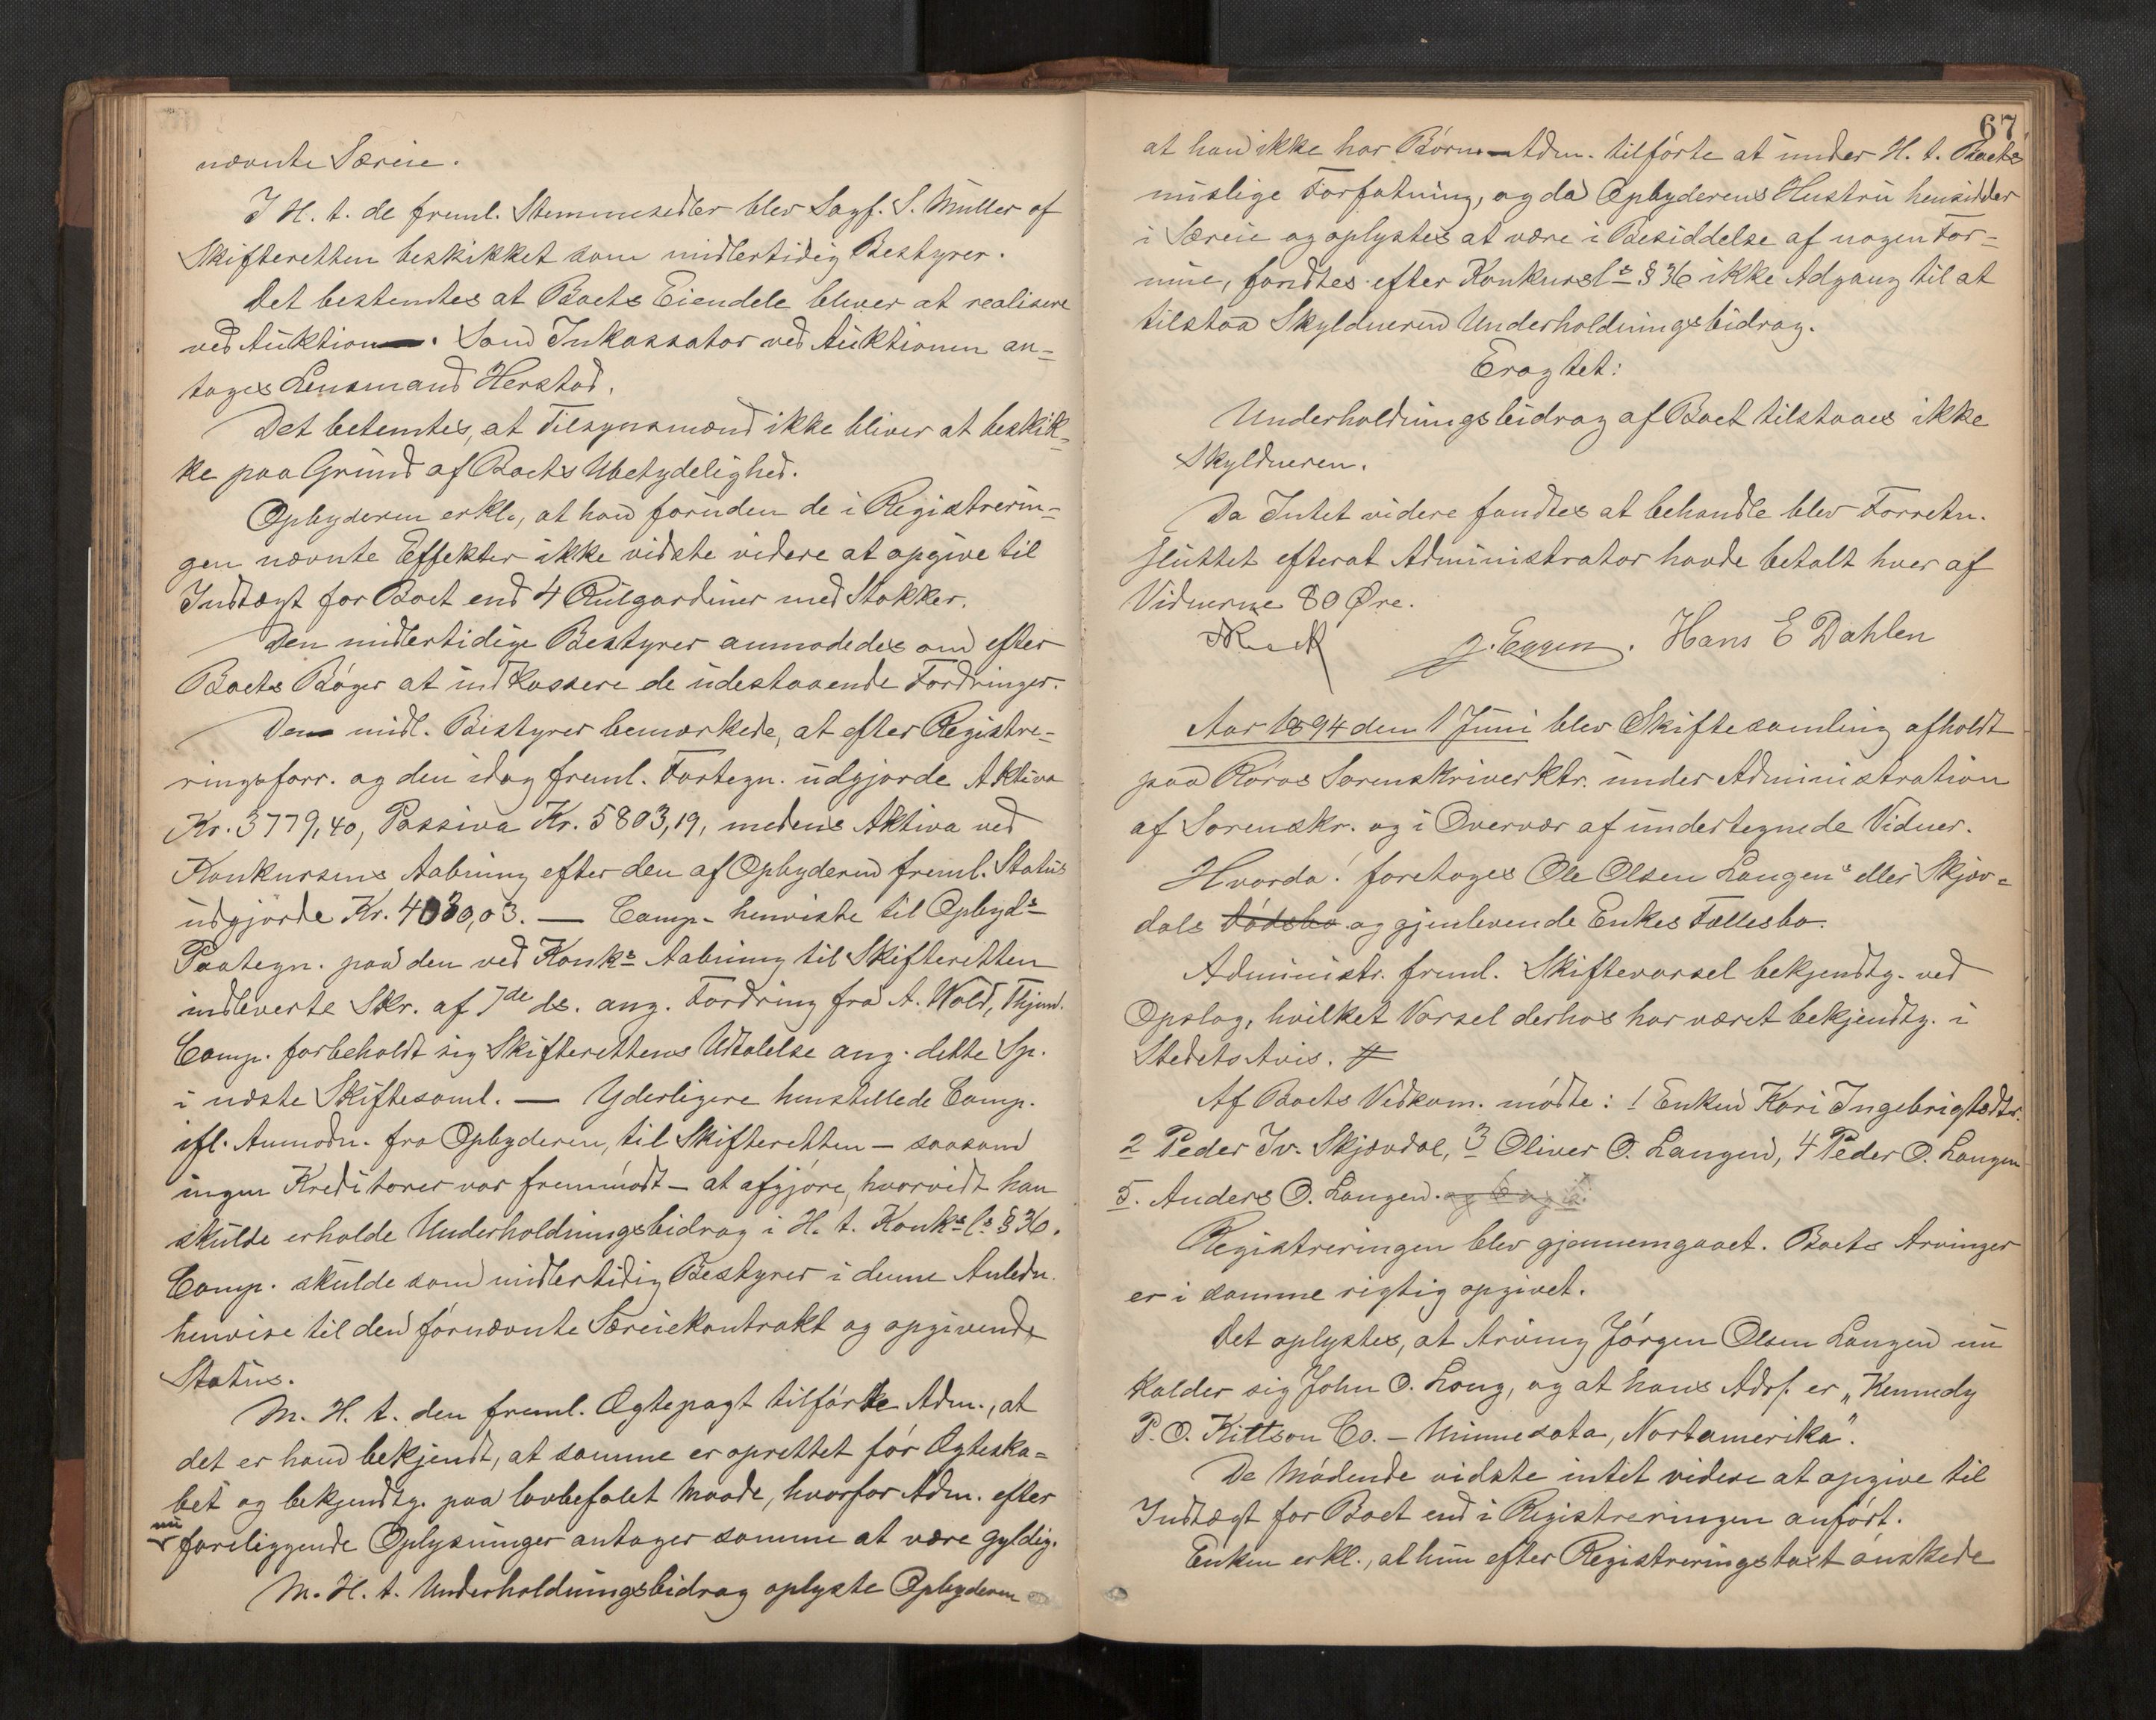 nævnte Særeie.
I H. t. de freml. Stemmesedler blev Sagf. S. Müller af
Skifteretten beskikket som midlertidig Bestyrer.
Det bestemtes at Boets Eiendele bliver at realisere
ved Auktion. Som Inkassator ved Auktionen an-
toges Lensmand Herstad.
Det betemtes, at Tilsynsmænd ikke bliver at beskik-
ke paa Grund af Boets Ubetydelighed.
Opbyderen erkl., at han foruden de i Registrerin-
gen nævnte Effekter ikke vidste videre at opgive til
Indtægt for Boet end 4 Rulgardiner med Stokker.
Den midlertidige Bestyrer anmodedes om efter
Boets Bøger at indkassere de udestaaende Fordringer.
Den midl. Bestyrer bemærkede, at efter Registre-
ringsforr. og den idag freml. Fortegn. udgjorde Aktiva
Kr. 3779,40, Passiva Kr. 5803,19, medens Aktiva ved
Konkursens Aabning efter den af Opbyderen freml. Status
udgjorde Kr. 4030,03. — Comp. henviste til Opbyds
Paategn. paa den ved Konks Aabning til Skifteretten
indleverte Skr. af 7de ds. ang. Fordring fra A. Wold, Thjem.
Comp. forbeholdt sig Skifterettens Udtalelse ang. dette Sp.
i næste Skiftesaml. — Yderligere henstillede Comp.
ifl. Anmodn. fra Opbyderen, til Skifteretten – saasom
ingen Kreditorer var fremmødt – at afgjøre, hvorvidt han
skulde erholde Underholdningsbidrag i H. t. Konks ls § 36.
Comp. skulde som midlertidig Bestyrer i denne Anledn.
henvise til den førnævnte Særeiekontrakt og opgivende
Status.
M. H. t. den freml. Ægtepagt tilførte Adm., at
det er ham bekjendt, at samme er oprettet før Ægteska-
bet og bekjendtg. paa lovbefalet Maade, hvorfor Adm. efter
nu foreliggende Oplysninger antager samme at være gyldig.
M. H. t. Underholdningsbidrag oplyste Opbyderen
67
at han ikke har Børn – Adm. tilførte at under H. t. Boets
mislige Forfatning, og da Opbyderens Hustru hensidder
i Særeie og oplystes at være i Besiddelse af nogen For-
mue, fandtes efter Konkursls § 36 ikke Adgang til at
tilstaa Skyldneren Underholdningsbidrag.
Eragtet:
Underholdningsbidrag af Boet tilstaaes ikke
Skyldneren.
Da Intet videre fandtes at behandle blev Forretn.
sluttet efterat Administrator havde betalt hver af
Vidnerne 80 Øre.
J. Eggen. Hans E Dahlen
Aar 1894 den 1 Juni blev Skiftesamling afholdt
paa Røros Sorenskriverktr. under Administration
af Sorenskr. og i Overvær af undertegnede Vidner.
Hvorda! foretoges Ole Olsen Langens eller Skjøv-
dals Dødsbo og gjenlevende Enkes Fællesbo.
Administr. freml. Skiftevarsel bekjendtg. ved
Opslag, hvilket Varsel derhos har været bekjendtg. i
Stedets Avis. #
Af Boets Vedkom. mødte: 1 Enken Kari Ingebrigtsdtr.
2 Peder Iv. Skjøvdal, 3 Oliver O. Langen, 4 Peder O. Langen
5. Anders O. Langen.
Registreringen blev gjennemgaaet. Boets Arvinger
er i samme rigtig opgivet.
Det oplystes, at Arving Jørgen Olsen Langen nu
kalder sig John O. Long, og at hans Adrs. er „Kennedy
P. O. Kittson Co. – Minnesota, Nortamerika".
De Mødende vidste intet videre at opgive til
Indtægt for Boet end i Registreringen anført.
Enken erkl., at hun efter Registreringstaxt ønskede